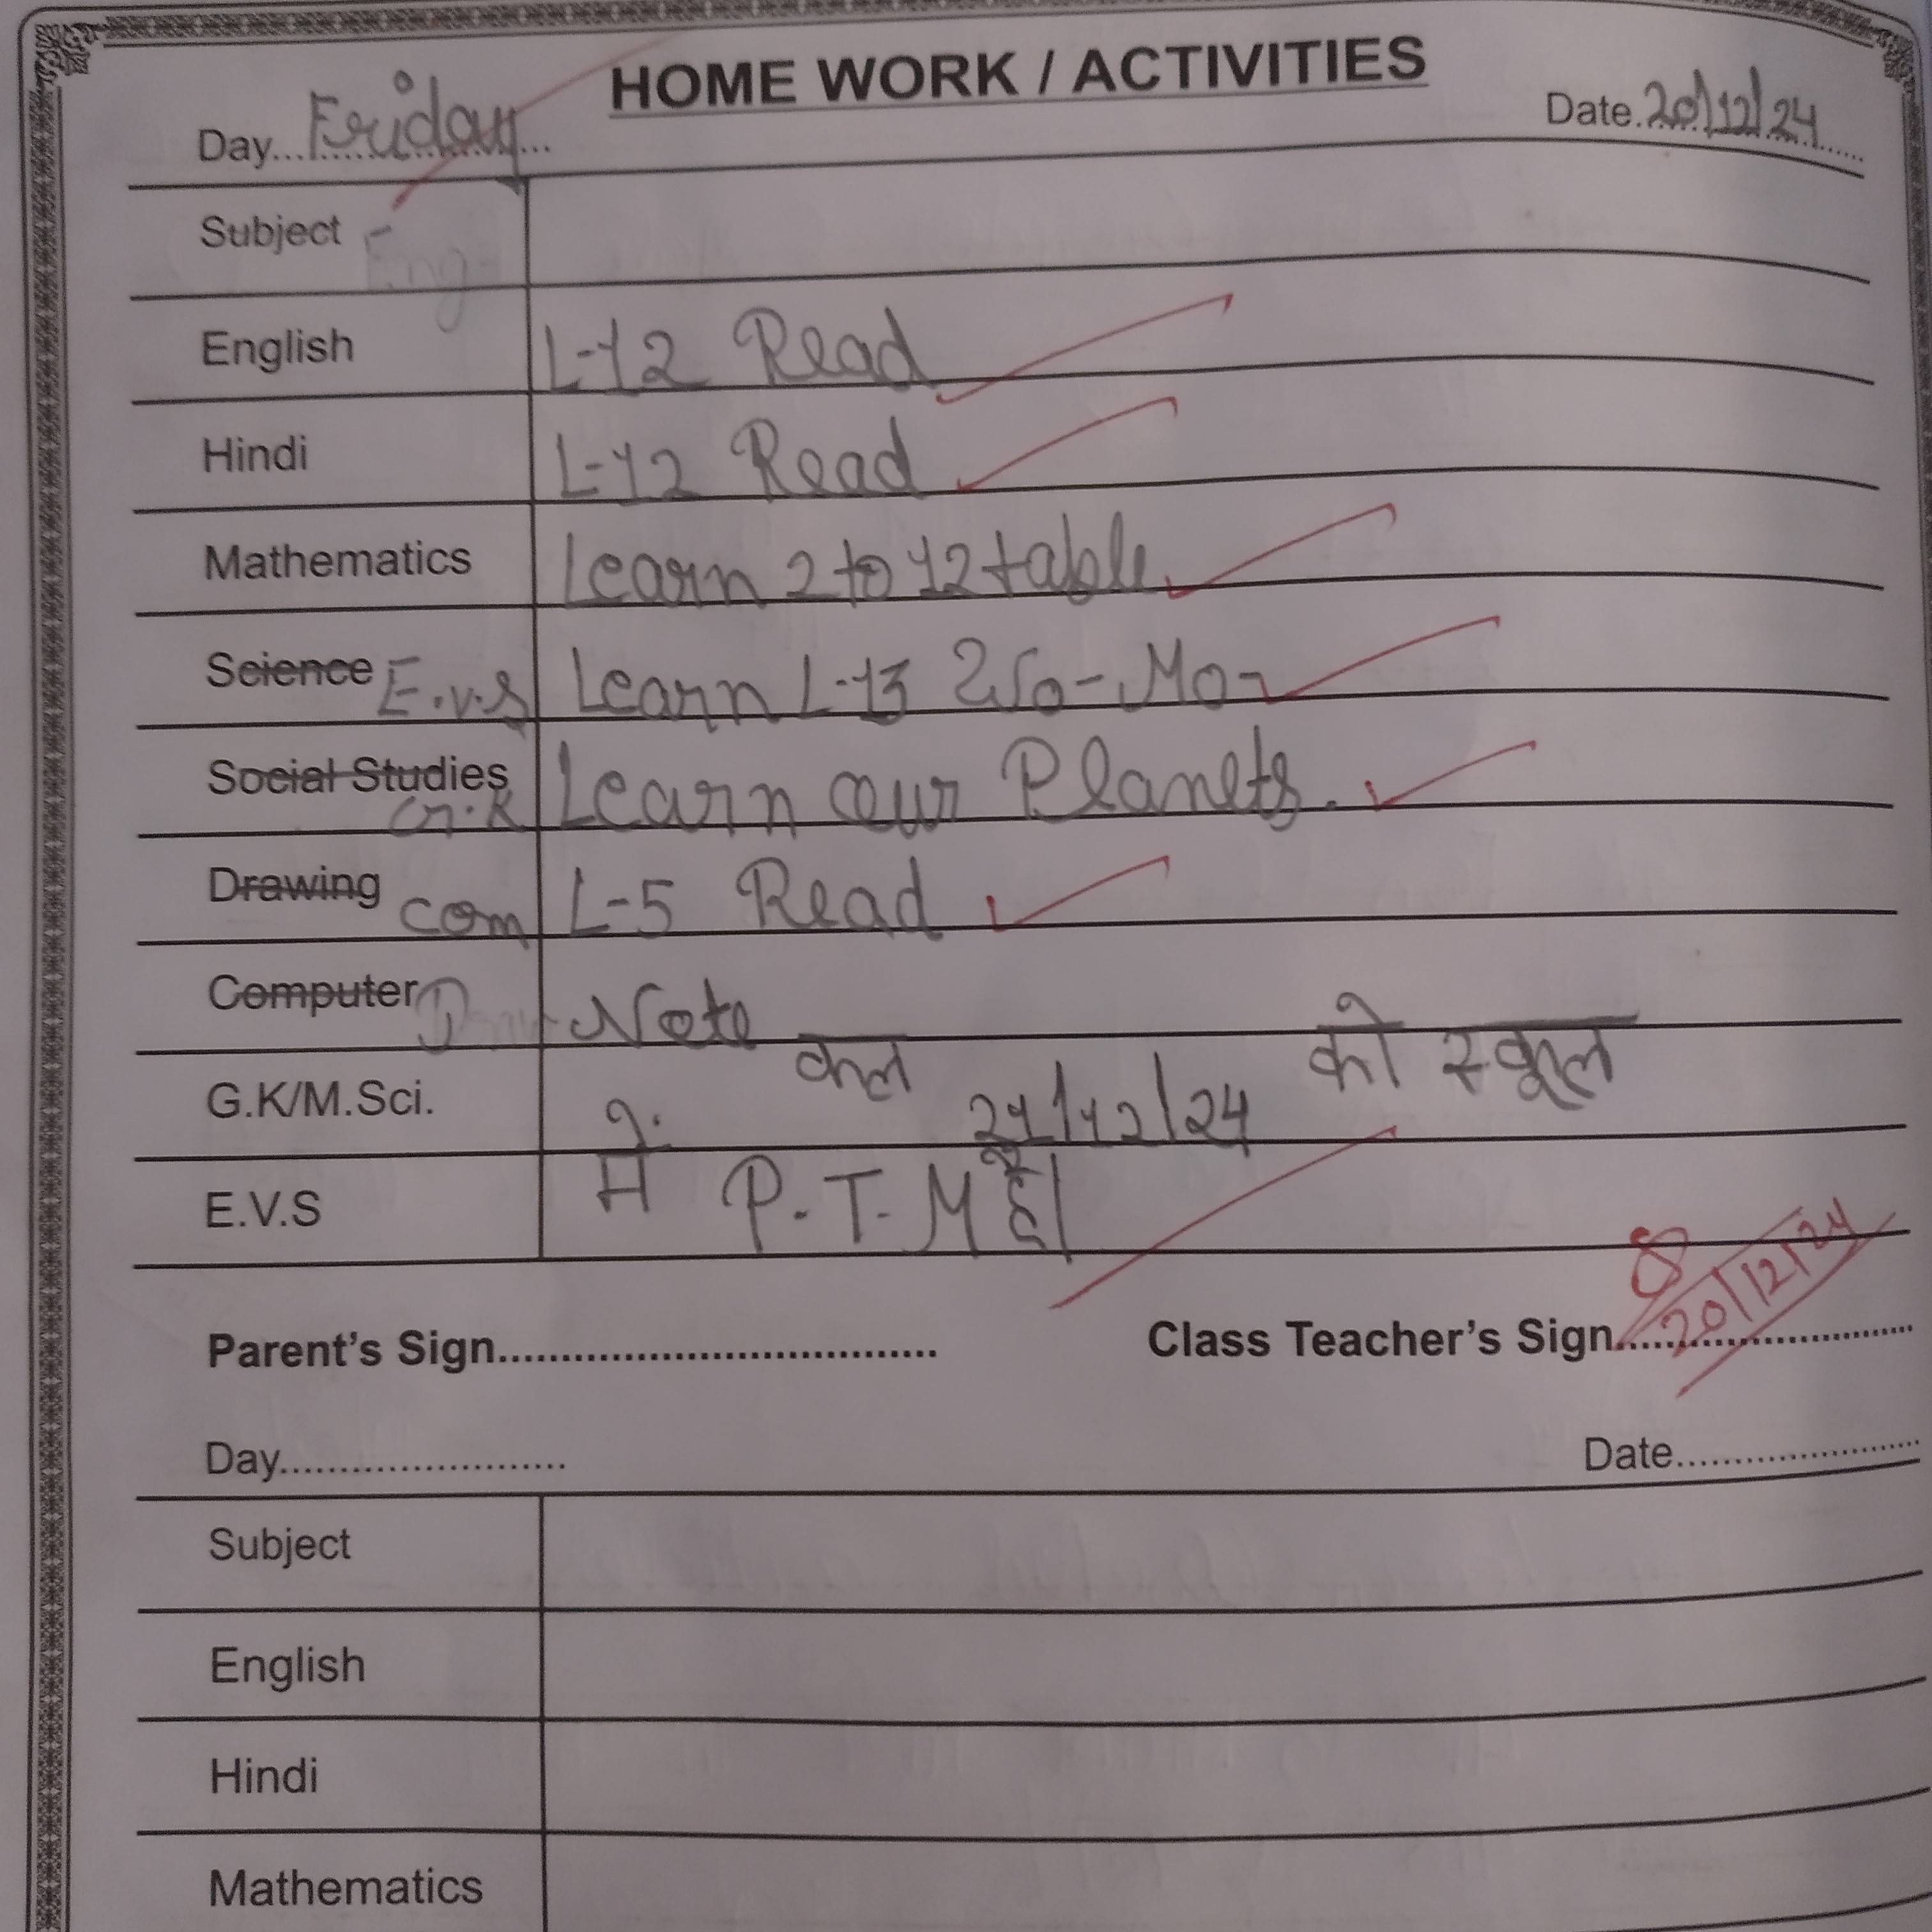 HOME WORK / ACTIVITIES
Day...Friday... Date.20/12/24
Subject - Eng
English L-12 Read
Hindi L-12 Read
Mathematics Learn 2 to 12 table
Science E.v.s Learn L-13
Social Studies G.K Learn our Planets.
Drawing com L-5 Read
Computer Note
G.K/M.Sci. कल 21/12/24 को स्कूल
E.V.S में P.T.M है।
Parent's Sign................................... Class Teacher's Sign 20/12/24
Day....................... Date....................
Subject
English
Hindi
Mathematics